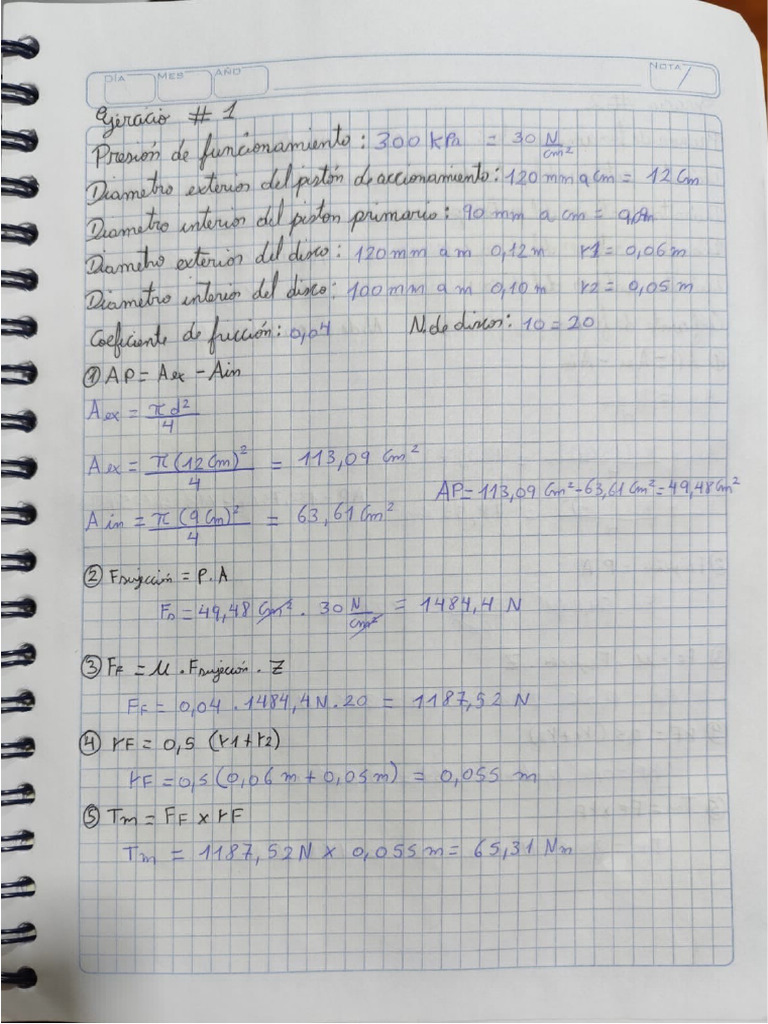 DÍA MES AÑO NOTA
Ejercicio # 1
Presión de funcionamiento : 300 KPa = 30 N/cm²
Diametro exterior del pistón de accionamiento: 120 mm a cm = 12 Cm
Diametro interior del piston primario: 90 mm a cm =
Diametro exterior del disco: 120 mm a m 0,12 m r1 = 0,06 m
Diametro interior del disco: 100 mm a m 0,10 m r2 = 0,05 m
Coeficiente de fricción: 0,04 N. de discos: 10 = 20
① AP = Aex - Ain
Aex = πd²/4
Aex = π(12Cm)²/4 = 113,09 Cm²
AP = 113,09 Cm² - 63,61 Cm² = 49,48 Cm²
Ain = π(9Cm)²/4 = 63,61 Cm²
② Fsujección = P.A
Fs = 49,48 Cm² . 30 N/Cm² = 1484,4 N
③ FF = µ . Fsujección . Z
FF = 0,04 . 1484,4 N . 20 = 1187,52 N
④ rF = 0,5 (r1+r2)
rF = 0,5 (0,06 m + 0,05 m) = 0,055 m
⑤ Tm = FF x rF
Tm = 1187,52 N x 0,055 m = 65,31 Nm